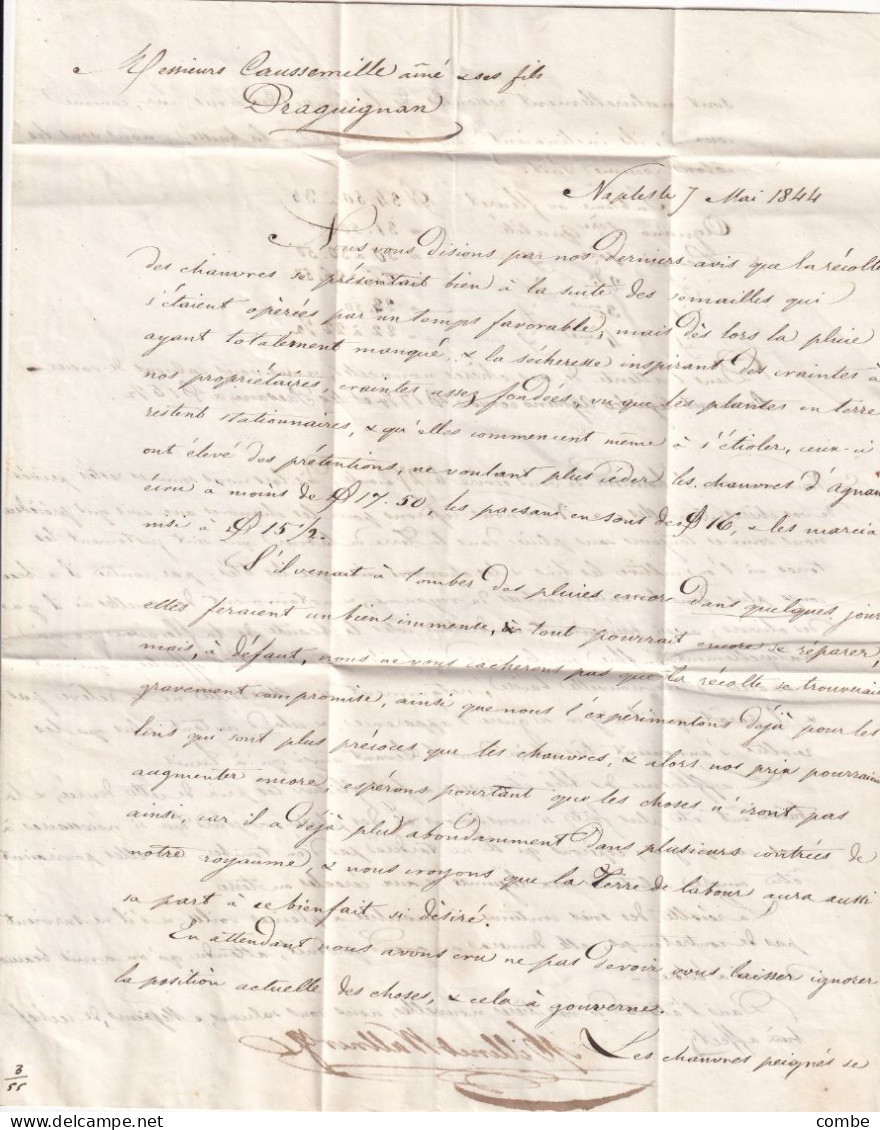 Messieurs Caussemille aîné & ses fils
Draguignan
Naples le 7 Mai 1844
Nous vous disions par nos derniers avis que la récolte
des chanvres se présentait bien à la suite des semailles qui
s'étaient opérées par un temps favorable, mais dès lors la pluie
ayant totalement manqué & la sécheresse inspirant des craintes à
nos propriétaires, craintes assez fondées, vu que les plantes en terre
restent stationnaires, & qu'elles commencent même à s'étioler, ceux-ci
ont élevé des prétentions, ne voulant plus céder les chanvres d'agnan
écru à moins de 17.50, les paesani en sous de 16, & les marcia
nisi à 15 1/2.
S'il venait à tomber des pluies encore dans quelques jour
elles feraient un bien immense, & tout pourrait encore se réparer,
mais, à défaut, nous ne vous cacherons pas que la récolte se trouverai
gravement compromise, ainsi que nous l'expérimentons déjà pour les
lins qui sont plus précoces que les chanvres, & alors nos prix pourraien
augmenter encore, espérons pourtant que les choses n'iront pas
ainsi, car il a déjà plu abondamment dans plusieurs contrées de
notre royaume, & nous croyons que la Terre de labour aura aussi
sa part à ce bienfait si désiré.
En attendant nous avons cru ne pas devoir vous laisser ignorer
la position actuelle des choses, & cela à gouverne.
Les chanvres peignés se
3
55
combe